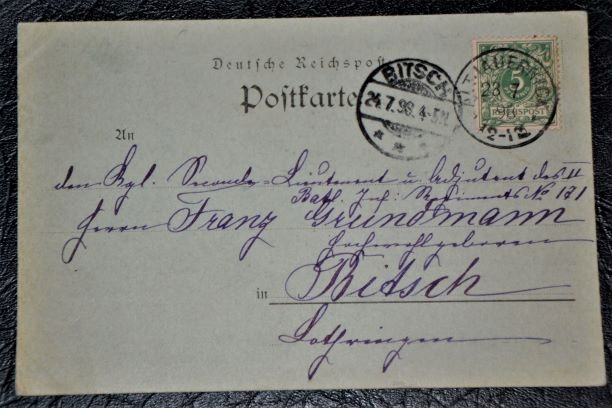 Deutsche Reichspost
Postkarte
BITSCH
24.7.98.4-5N
ALTHAUERBACH
23 7
98
12-1
5
REICHSPOST
An
den Kgl. Seconde-Lieutenant u. Adjutent des II
Batl. Inf. Regiments No 171
Herrn Franz Grundmann
Hochwohlgeboren
in Bitsch
Lothringen